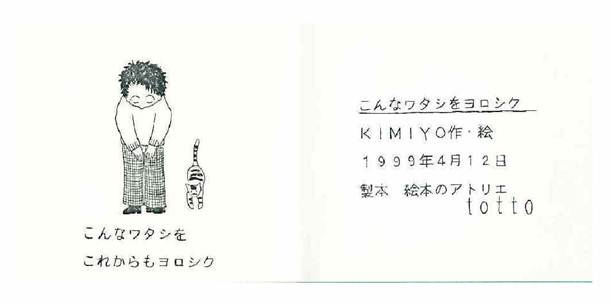 こんなワタシを
これからもヨロシク
こんなワタシをヨロシク
KIMIYO作・絵
1999年4月12日
製本 絵本のアトリエ
totto